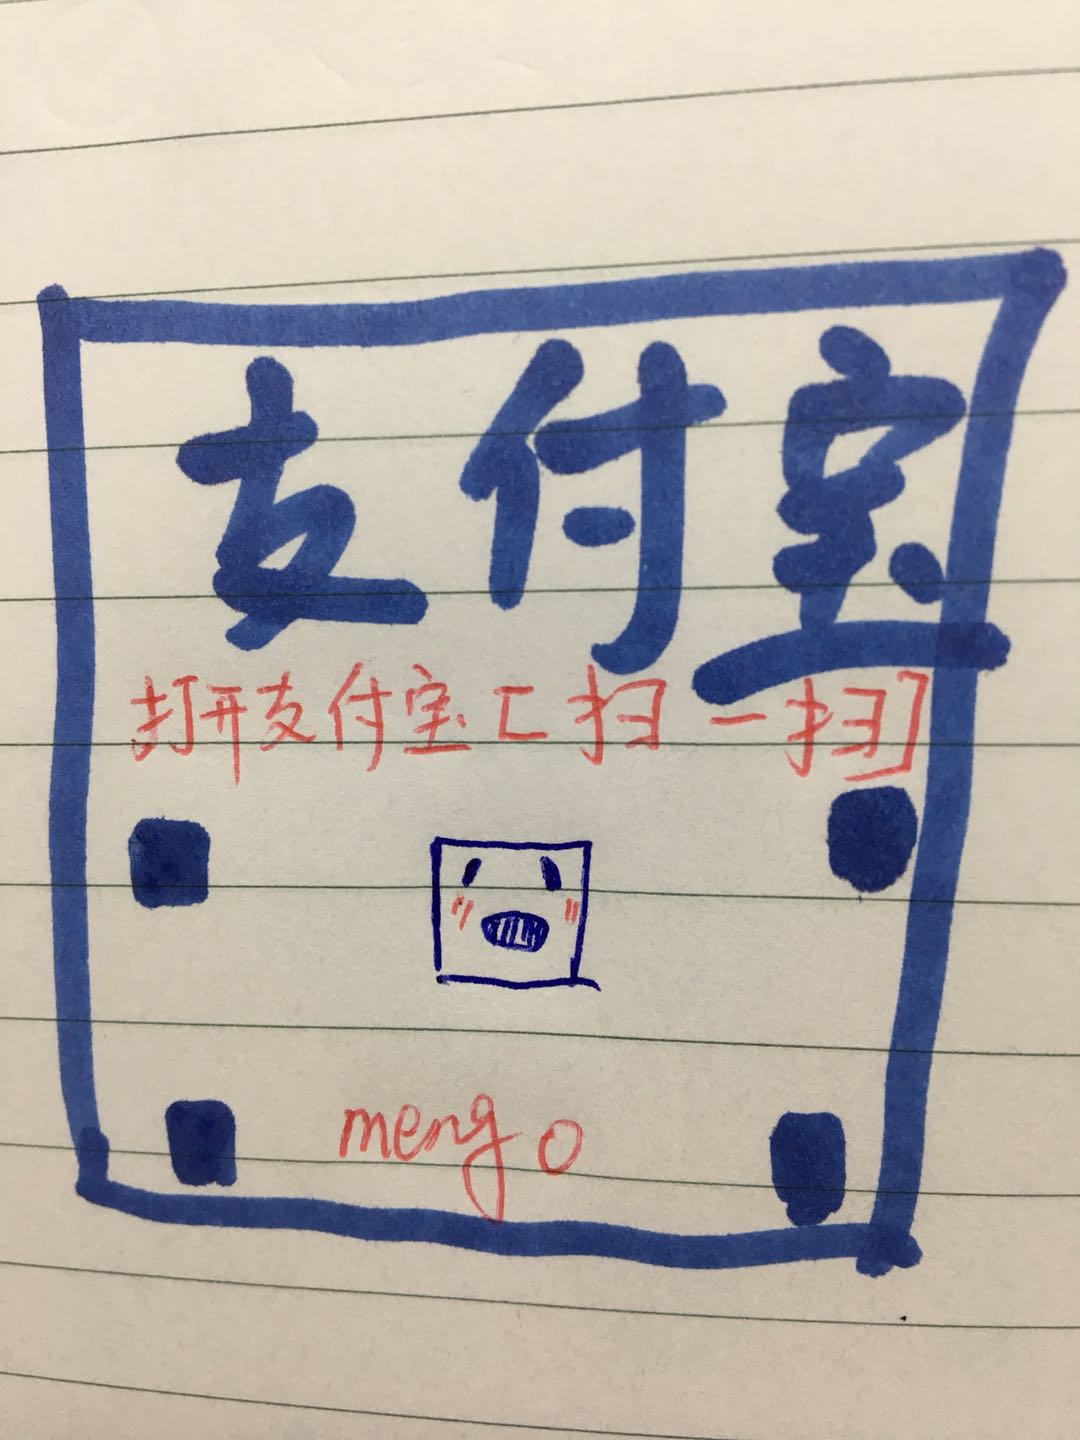 支付宝
打开支付宝[扫一扫]
meng o